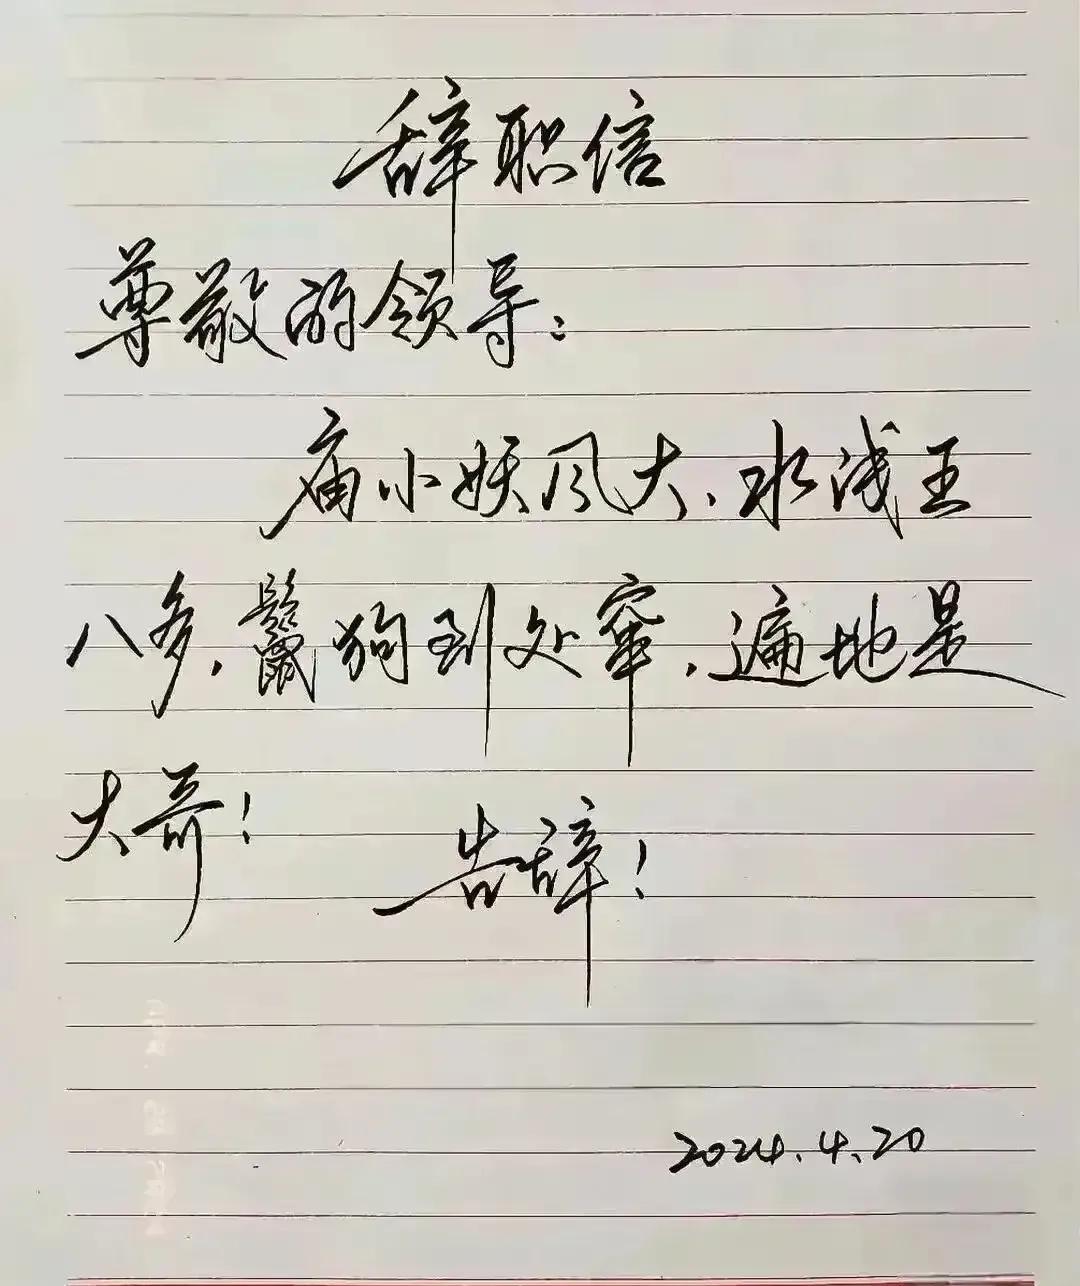 辞职信
尊敬的领导：
庙小妖风大，水浅王
八多，鬣狗到处窜，遍地是
大哥！
告辞！
2024.4.20